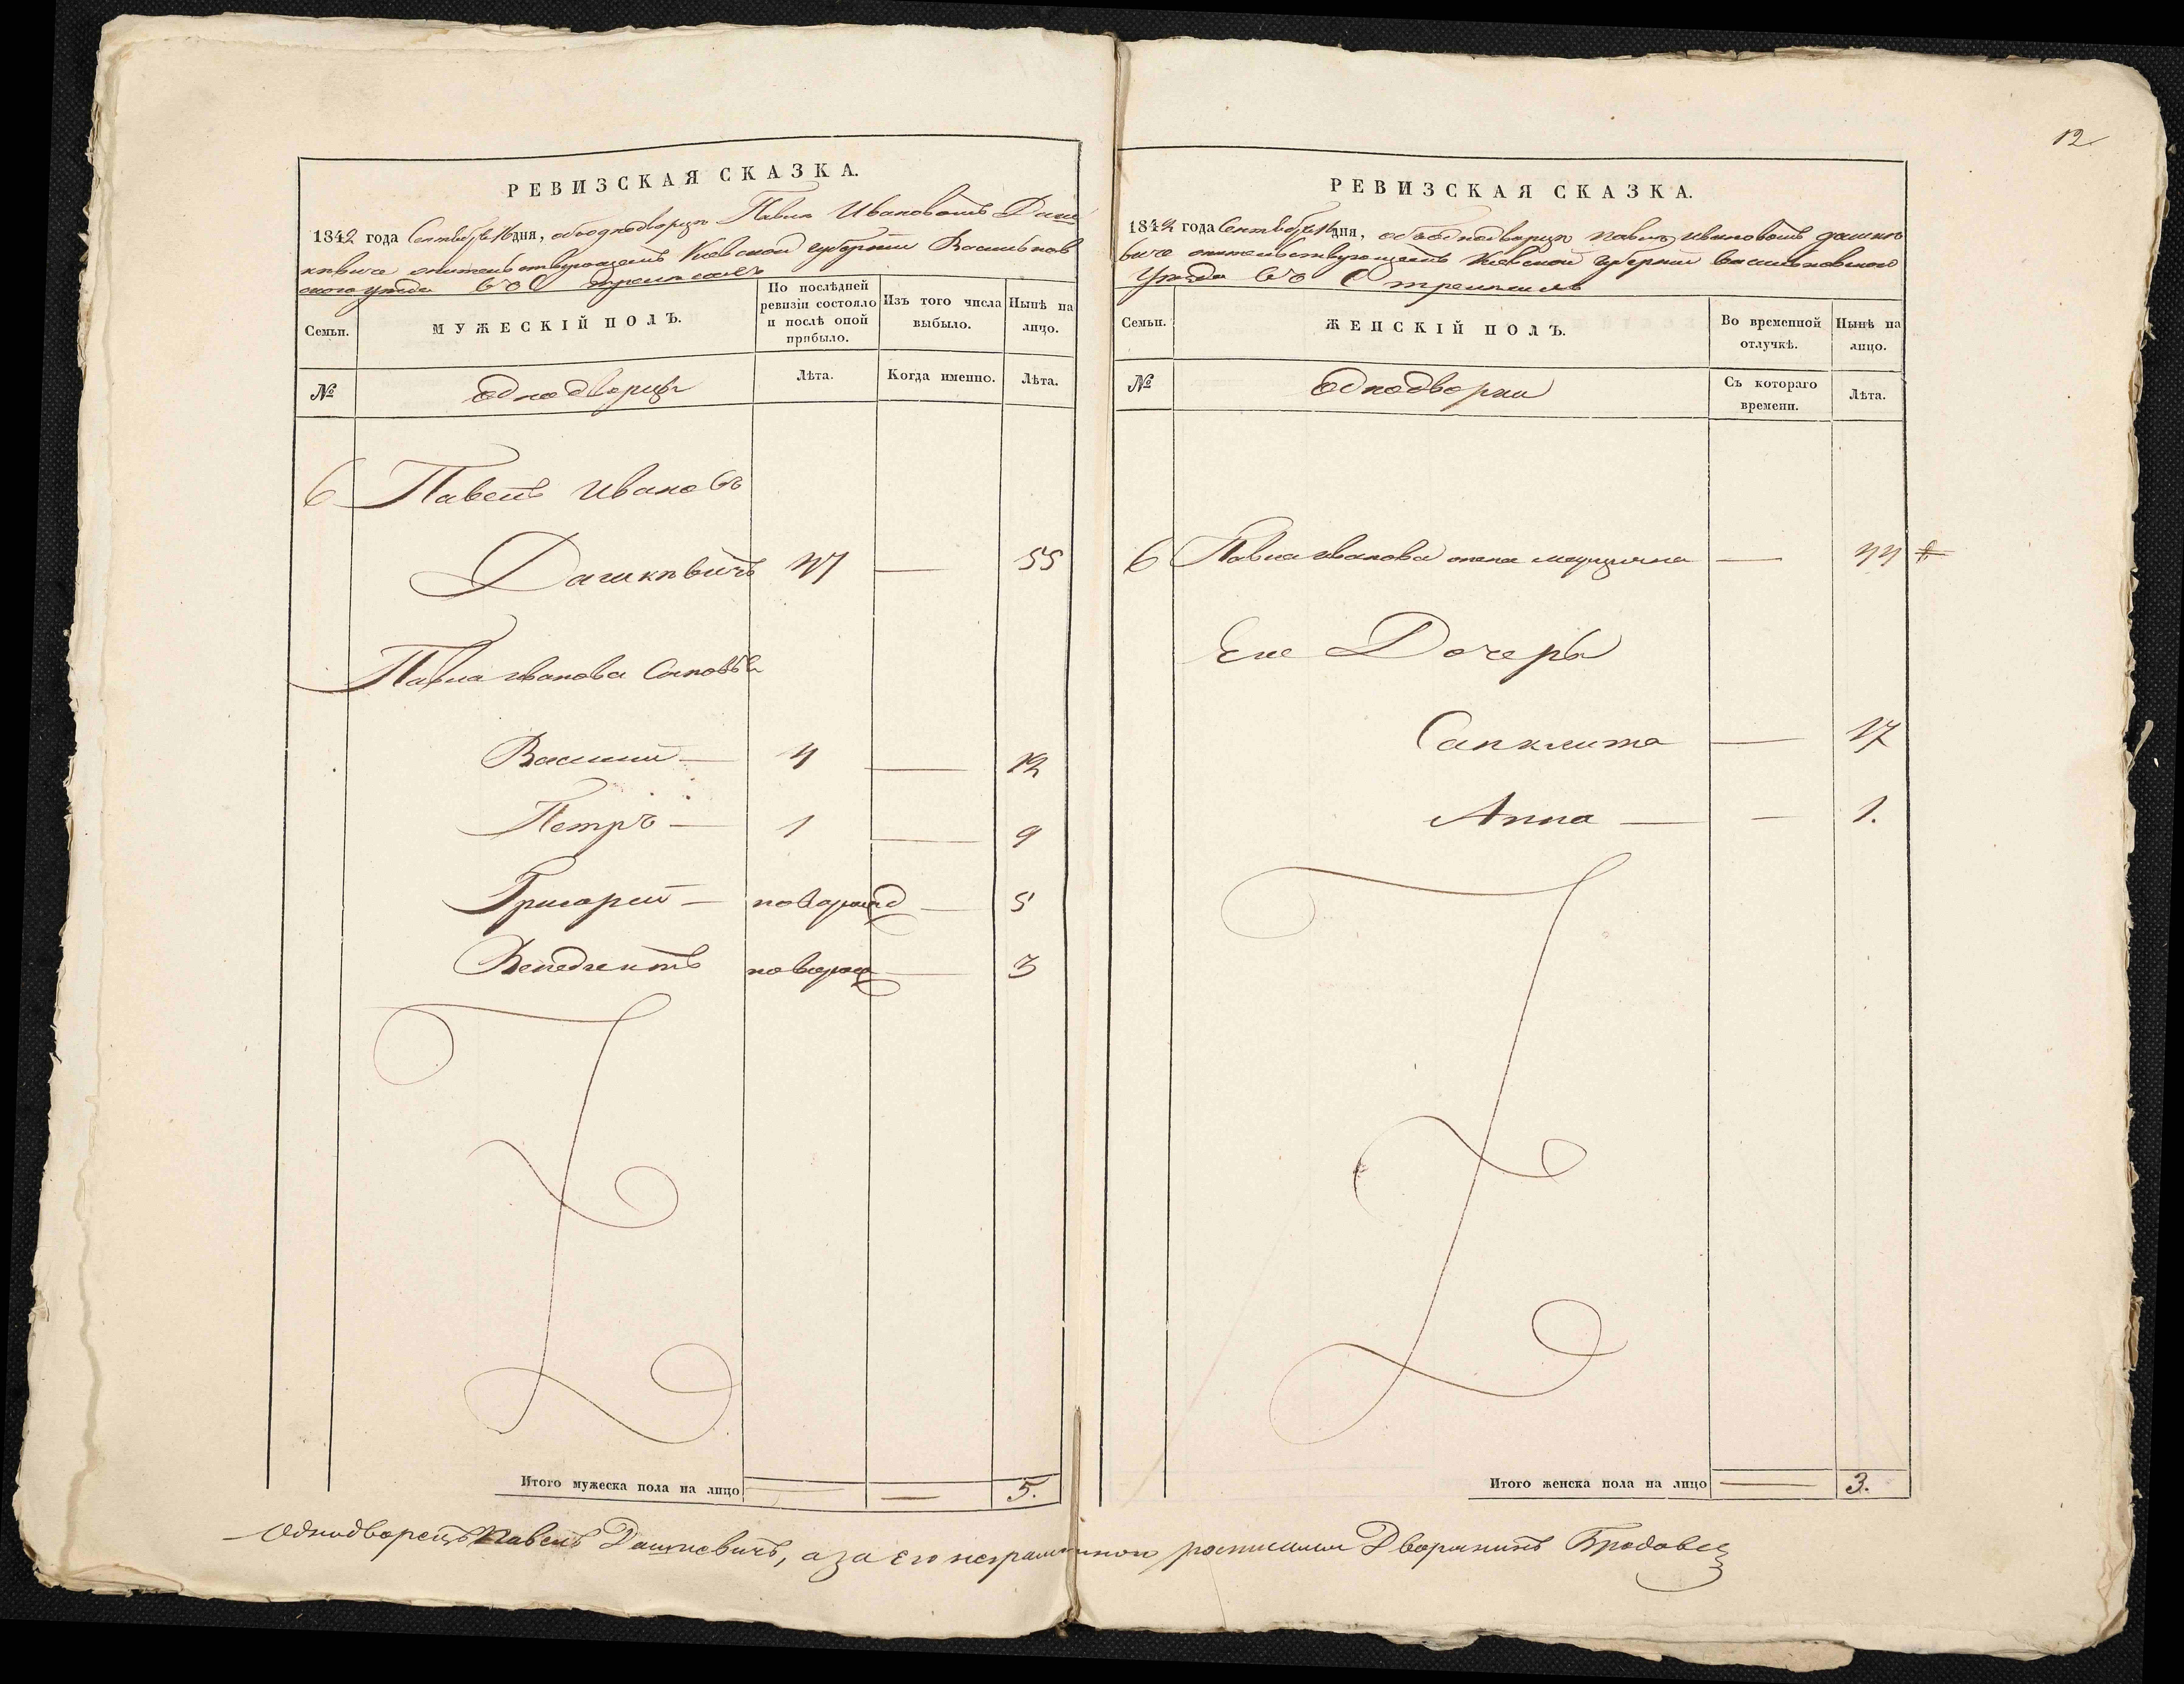 12
РЕВИЗСКАЯ СКАЗКА.
1842 года Сентября 16 дня, объ однодворцѣ Павлѣ Ивановомъ Даш
кѣвиче жительствующемъ Киевской губернии Васильков
ского уезда въ С
Семьи.
МУЖЕСКІЙ ПОЛЪ.
По послѣдней ревизіи состояло и послѣ оной прибыло.
Изъ того числа выбыло.
Нынѣ на лицо.
№
Однодворцы
Лѣта.
Когда именно.
Лѣта.
6 Павелъ Ивановъ
Дашкѣвичъ 47 — 55
Павла Иванова Сыновья
Василий — 4 — 12
Петръ — 1 — 9
Григорий — новорожд — 5
Венедиктъ новорож — 3
Итого мужеска пола на лицо — 5.
РЕВИЗСКАЯ СКАЗКА.
1842 года Сентября 16 дня, объ однодворцѣ Павлѣ Ивановомъ Дашкѣ
виче жительствующемъ Киевской губернии Васильковского
Уезда въ С
Семьи.
ЖЕНСКІЙ ПОЛЪ.
Во временной отлучкѣ.
Нынѣ на лицо.
№
Однодворки
Съ котораго времени.
Лѣта.
6 Павла Иванова жена — 44
Ея Дочери
— 17
Анна — — 1.
Итого женска пола на лицо — 3.
Однодворецъ Павелъ Дашкевичъ, а за его неграмотного росписался Дворянинъ